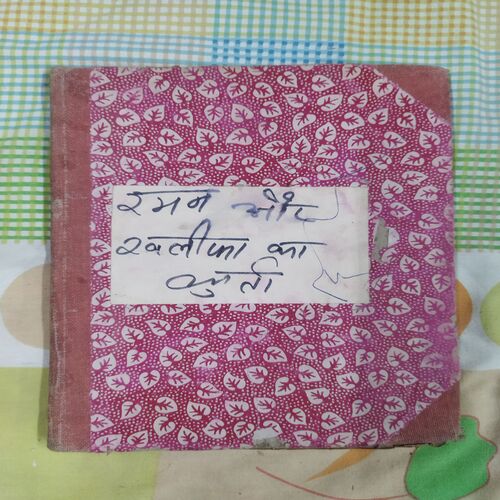 रमन और
खलीफा का